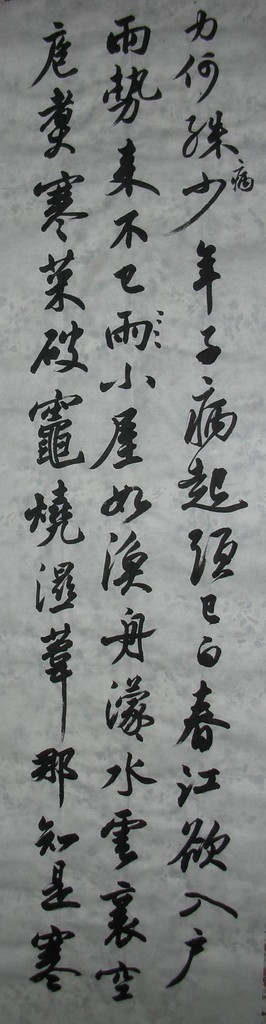 力何殊少年子病起頭已白春江欲入戶
病
雨勢來不已雨小屋如漁舟濛水雲裏空
庖煑寒菜破竈燒濕葦那知是寒